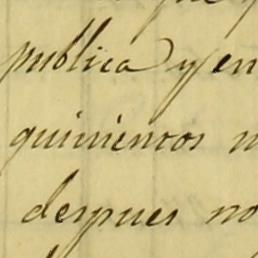 publica y en
quinientos
despues no